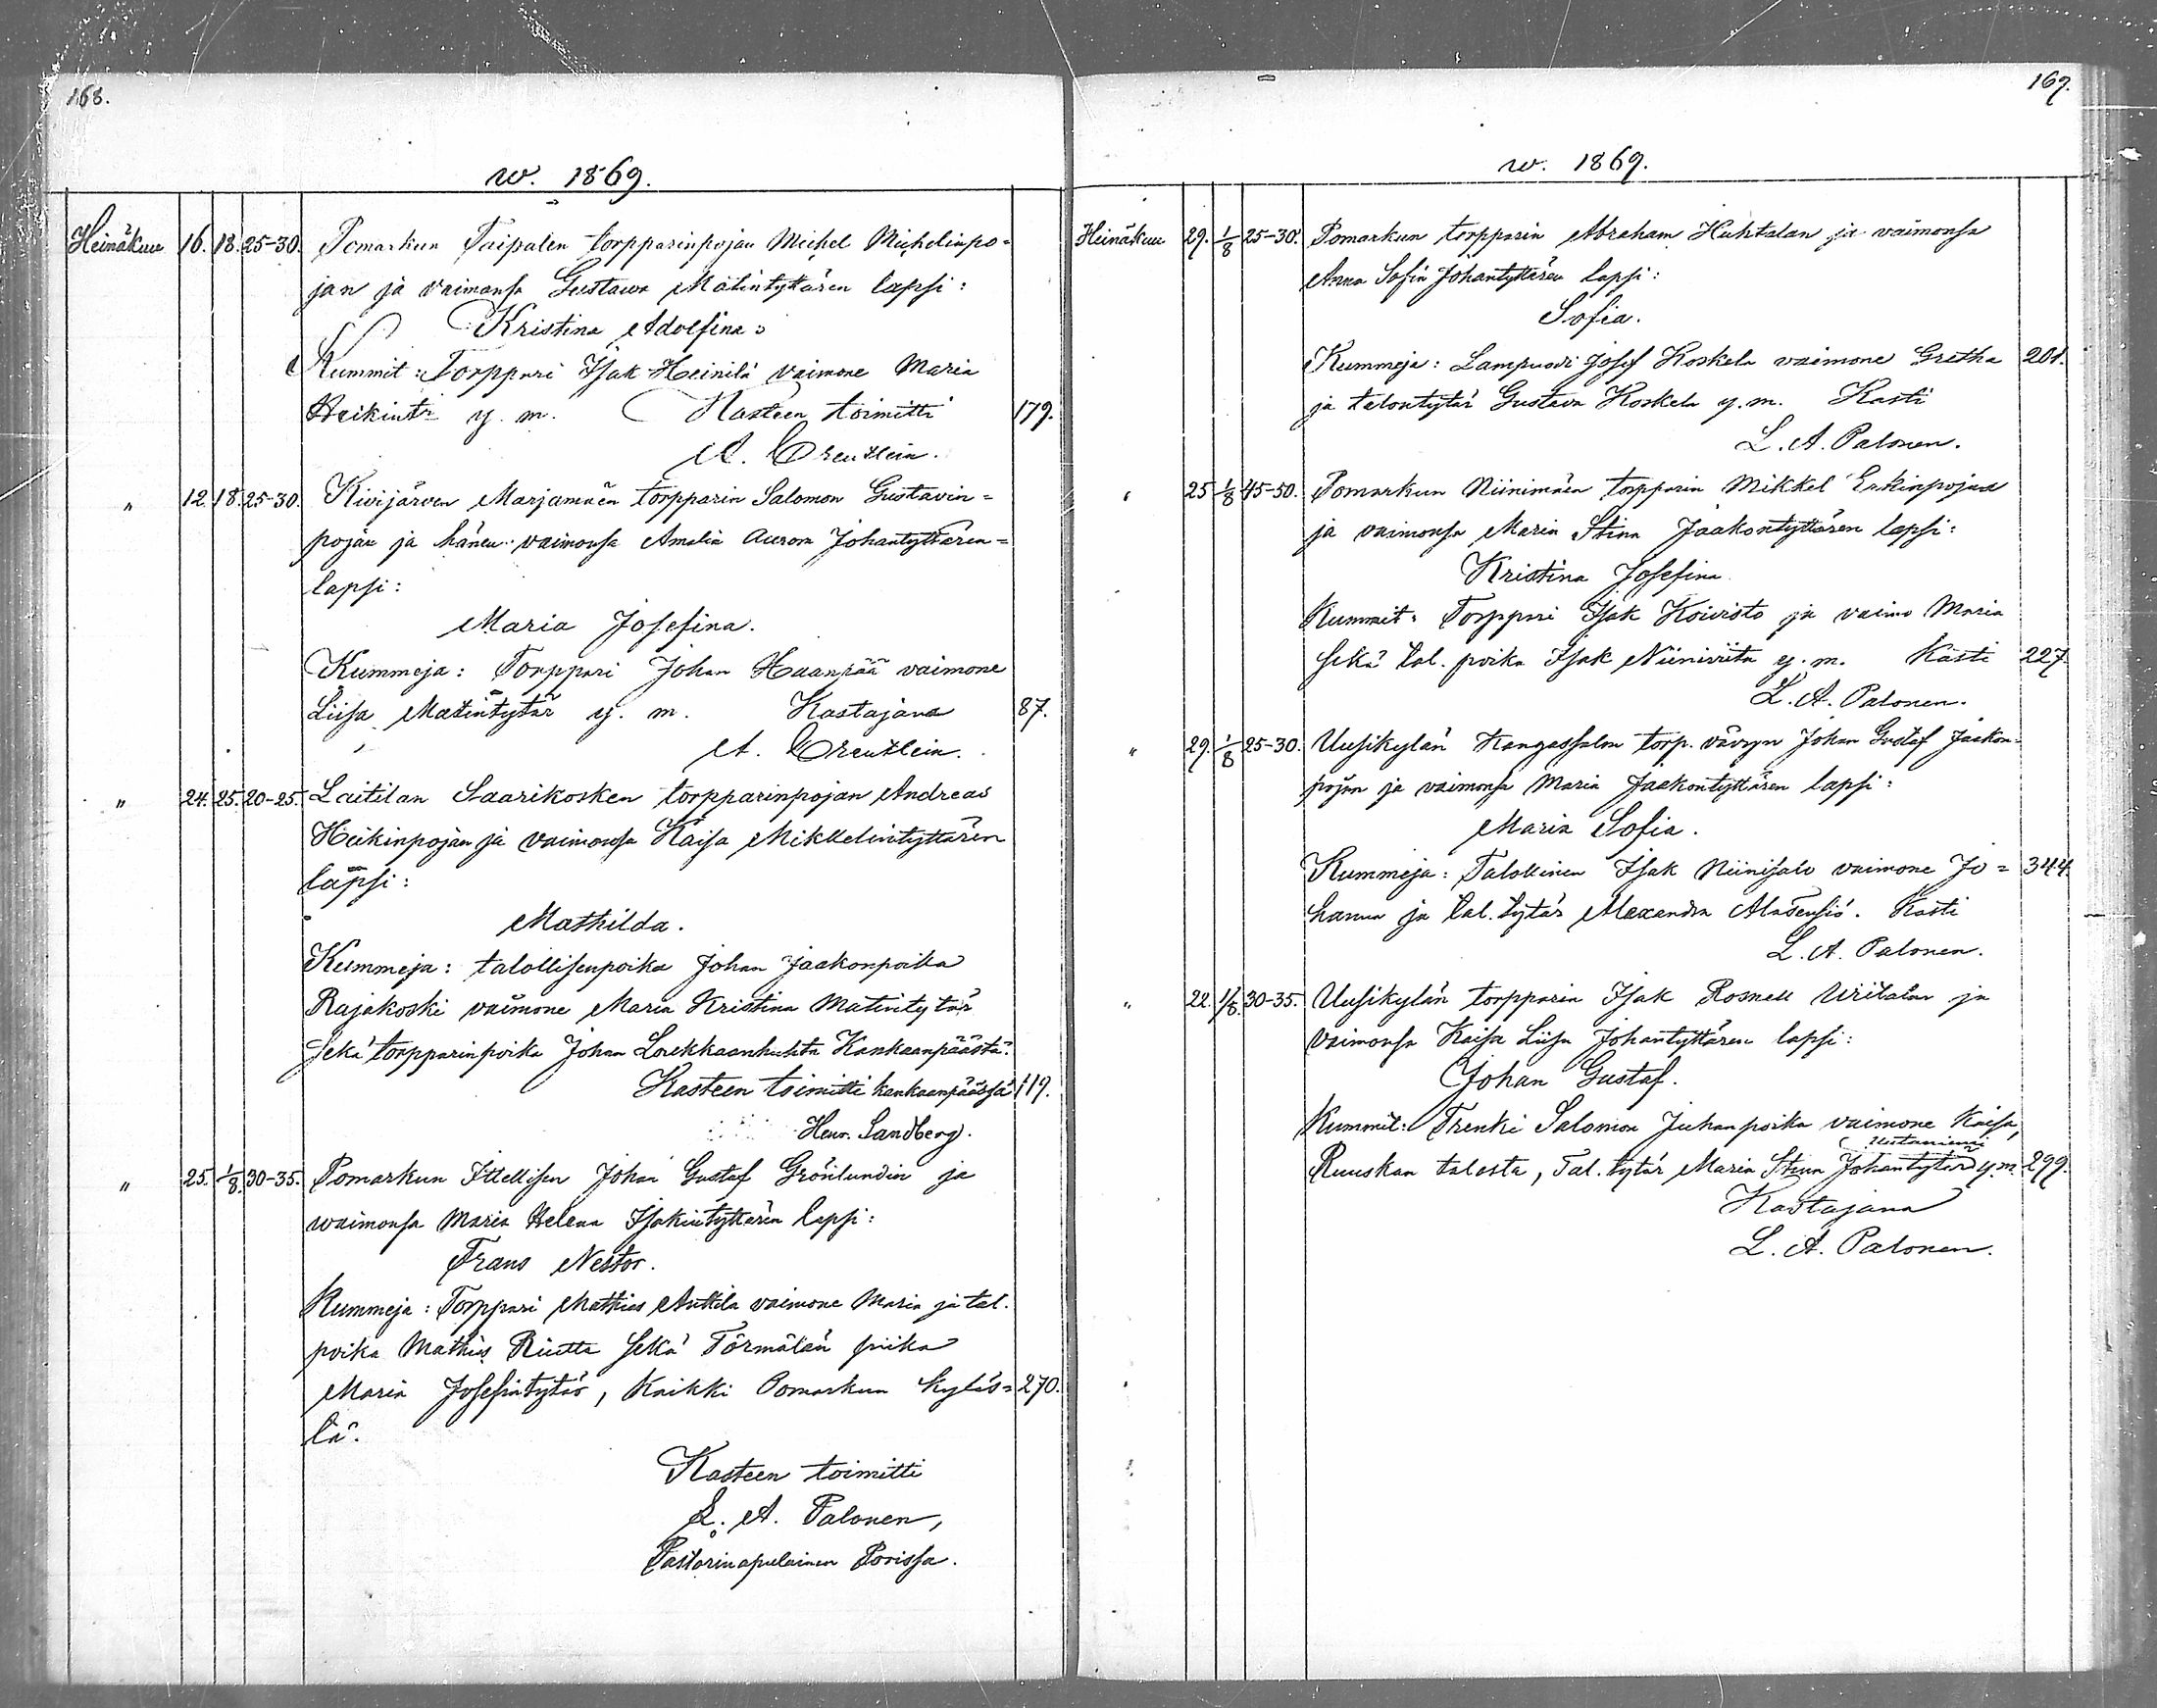 168.
w. 1869.
Heinäkuu 16. 18. 25-30. Pomarkun Taipalen torpparinpojan Michel Michelinpo=
jan ja vaimonsa Gustawa Matintyttären lapsi:
Kristina Adolfina.
Kummit: Torppari Isak Heinilä vaimone Maria
Heikintr y. m. Kasteen toimitti 179.
A. Creutlein.
" 12. 18. 25-30. Kivijärven Marjamäen torpparin Salomon Gustavin=
pojan ja hänen vaimonsa Amalia Aurora Johantyttären=
lapsi:
Maria Josefina.
Kummeja: Torppari Johan Haanpää vaimone
Liisa Matintytär y. m. Kastajana 87.
A. Creutlein.
" 24. 25. 20-25. Laitilan Saarikosken torpparinpojan Andreas
Heikinpojan ja vaimonsa Kaisa Mikkelintyttären
lapsi:
Mathilda.
Kummeja: talollisenpoika Johan Jaakonpoika
Rajakoski vaimone Maria Kristina Matintytär
sekä torpparinpoika Johan Kankaanpäästä.
Kasteen toimitti kankaanpäässä 119.
Henr. Sandberg.
" 25. 1/8. 30-35. Pomarkun Itellisen Johan Gustaf Grönlundin ja
waimonsa Maria Helena Isakintyttären lapsi:
Frans Nestor.
Kummeja: Torppari Mathias Anttila vaimone Maria ja tal.
poika Mathias Riutta sekä Törmälän piika
Maria Josefintytär, Kaikki Pomarkun kyläs= 270.
tä.
Kasteen toimitti
L. A. Palonen,
Pastorinapulainen Porissa.
169.
w. 1869.
Heinäkuu 29. 1/8 25-30. Pomarkun torpparin Abraham Huhtalan ja vaimonsa
Anna Sofia Johantyttären lapsi:
Sofia.
Kummeja: Lampuodi Josef Koskela vaimone Gretha 201.
ja talontytär Gustava Koskela y. m. Kasti
L. A. Palonen.
" 25 1/8 45-50. Pomarkun Niinimäen torpparin Mikkel Erkinpojan
ja vaimonsa Maria Stina Jaakontyttären lapsi:
Kristina Josefina
Kummit: Torppari Isak Koivisto ja vaimo Maria
sekä tal. poika Isak Niiniviita y. m. Kasti 227
L. A. Palonen.
" 29. 1/8 25-30. Uusikylän Kangassalon torp. vävyn Johan Gustaf Jaakon=
pojan ja vaimonsa Maria Jaakontyttären lapsi:
Maria Sofia.
Kummeja: Talollinen Isak Niinisalo vaimone Jo= 344.
hanna ja tal. tytär Alexandra. Kasti
L. A. Palonen.
" 22. 1/8. 30-35. Uusikylän torpparin Isak Rosnell ja
vaimonsa Kaisa Liisa Johantyttären lapsi:
Johan Gustaf.
Kummit: Trenki Salomon Juhanpoika vaimone Kaisa,
Ruuskan talosta, Tal. tytär Maria Stina Johantytär y. m. 299.
Kastajana
L. A. Palonen.